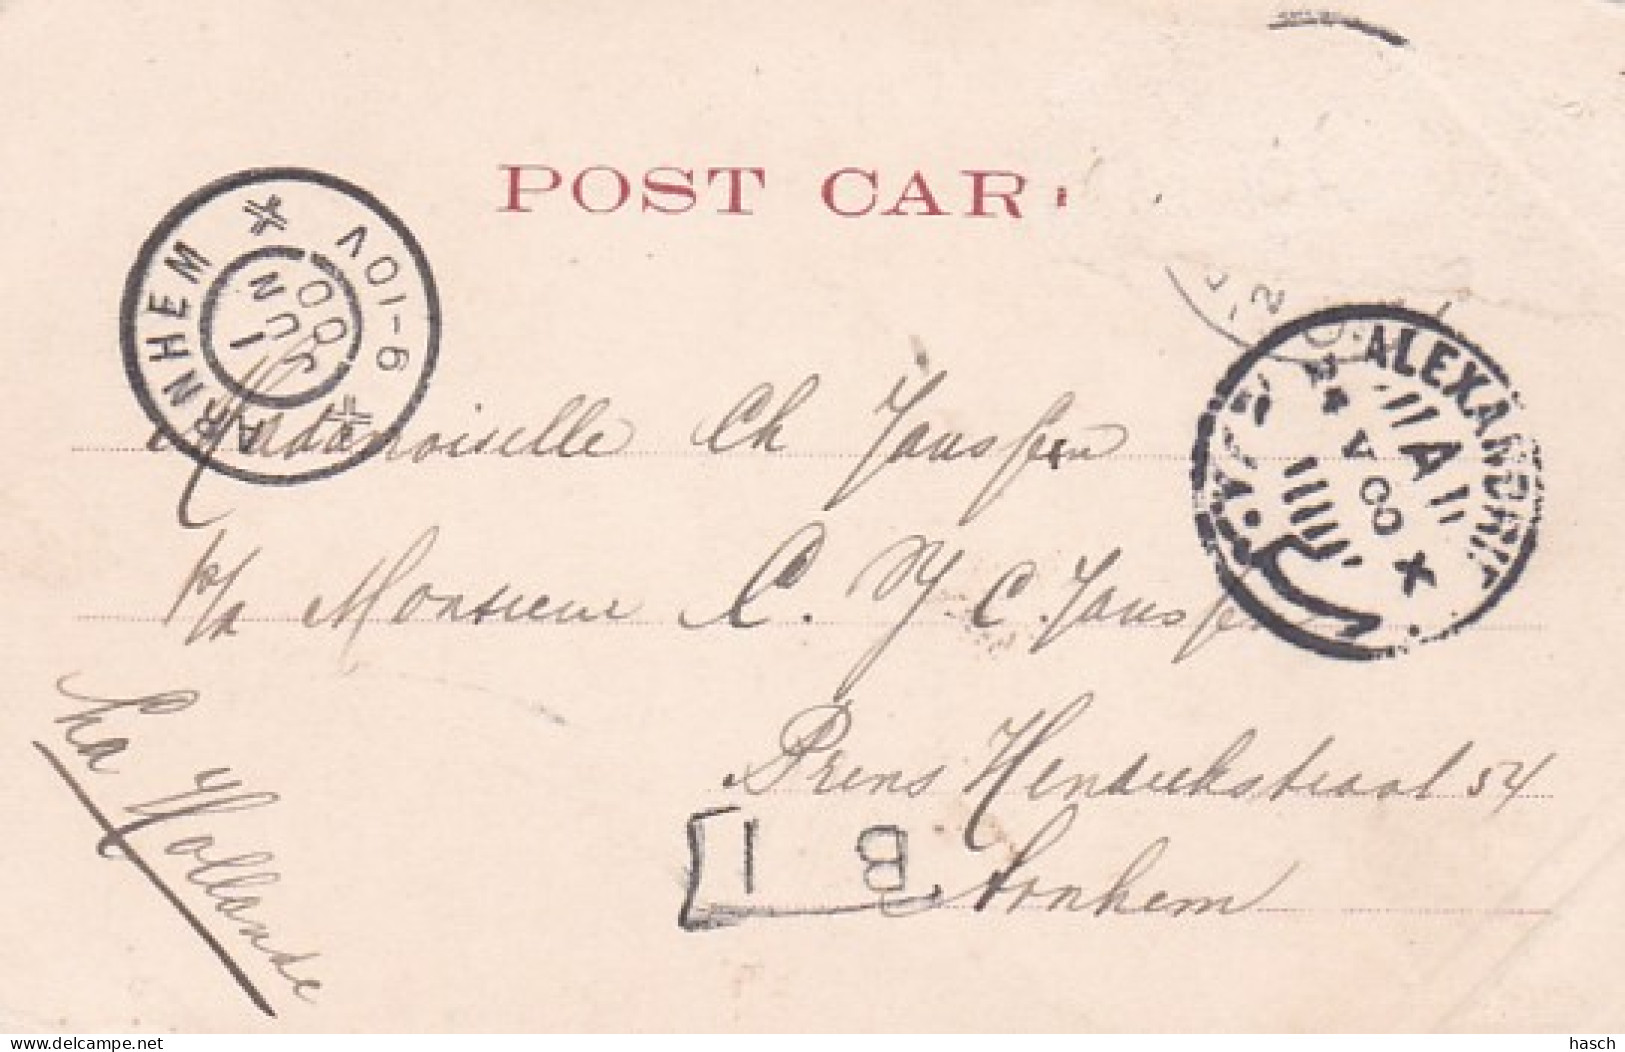 POST CAR
ARNHEM
1 JUN 00
9-10V
ALEXANDRI
A
V 00
Mademoiselle Ch Janssen
p/a Monsieur C. J. C. Janssen
Prins Hendrikstraat 54
Arnhem
La Hollande
B I
www.delcampe.net
hasch